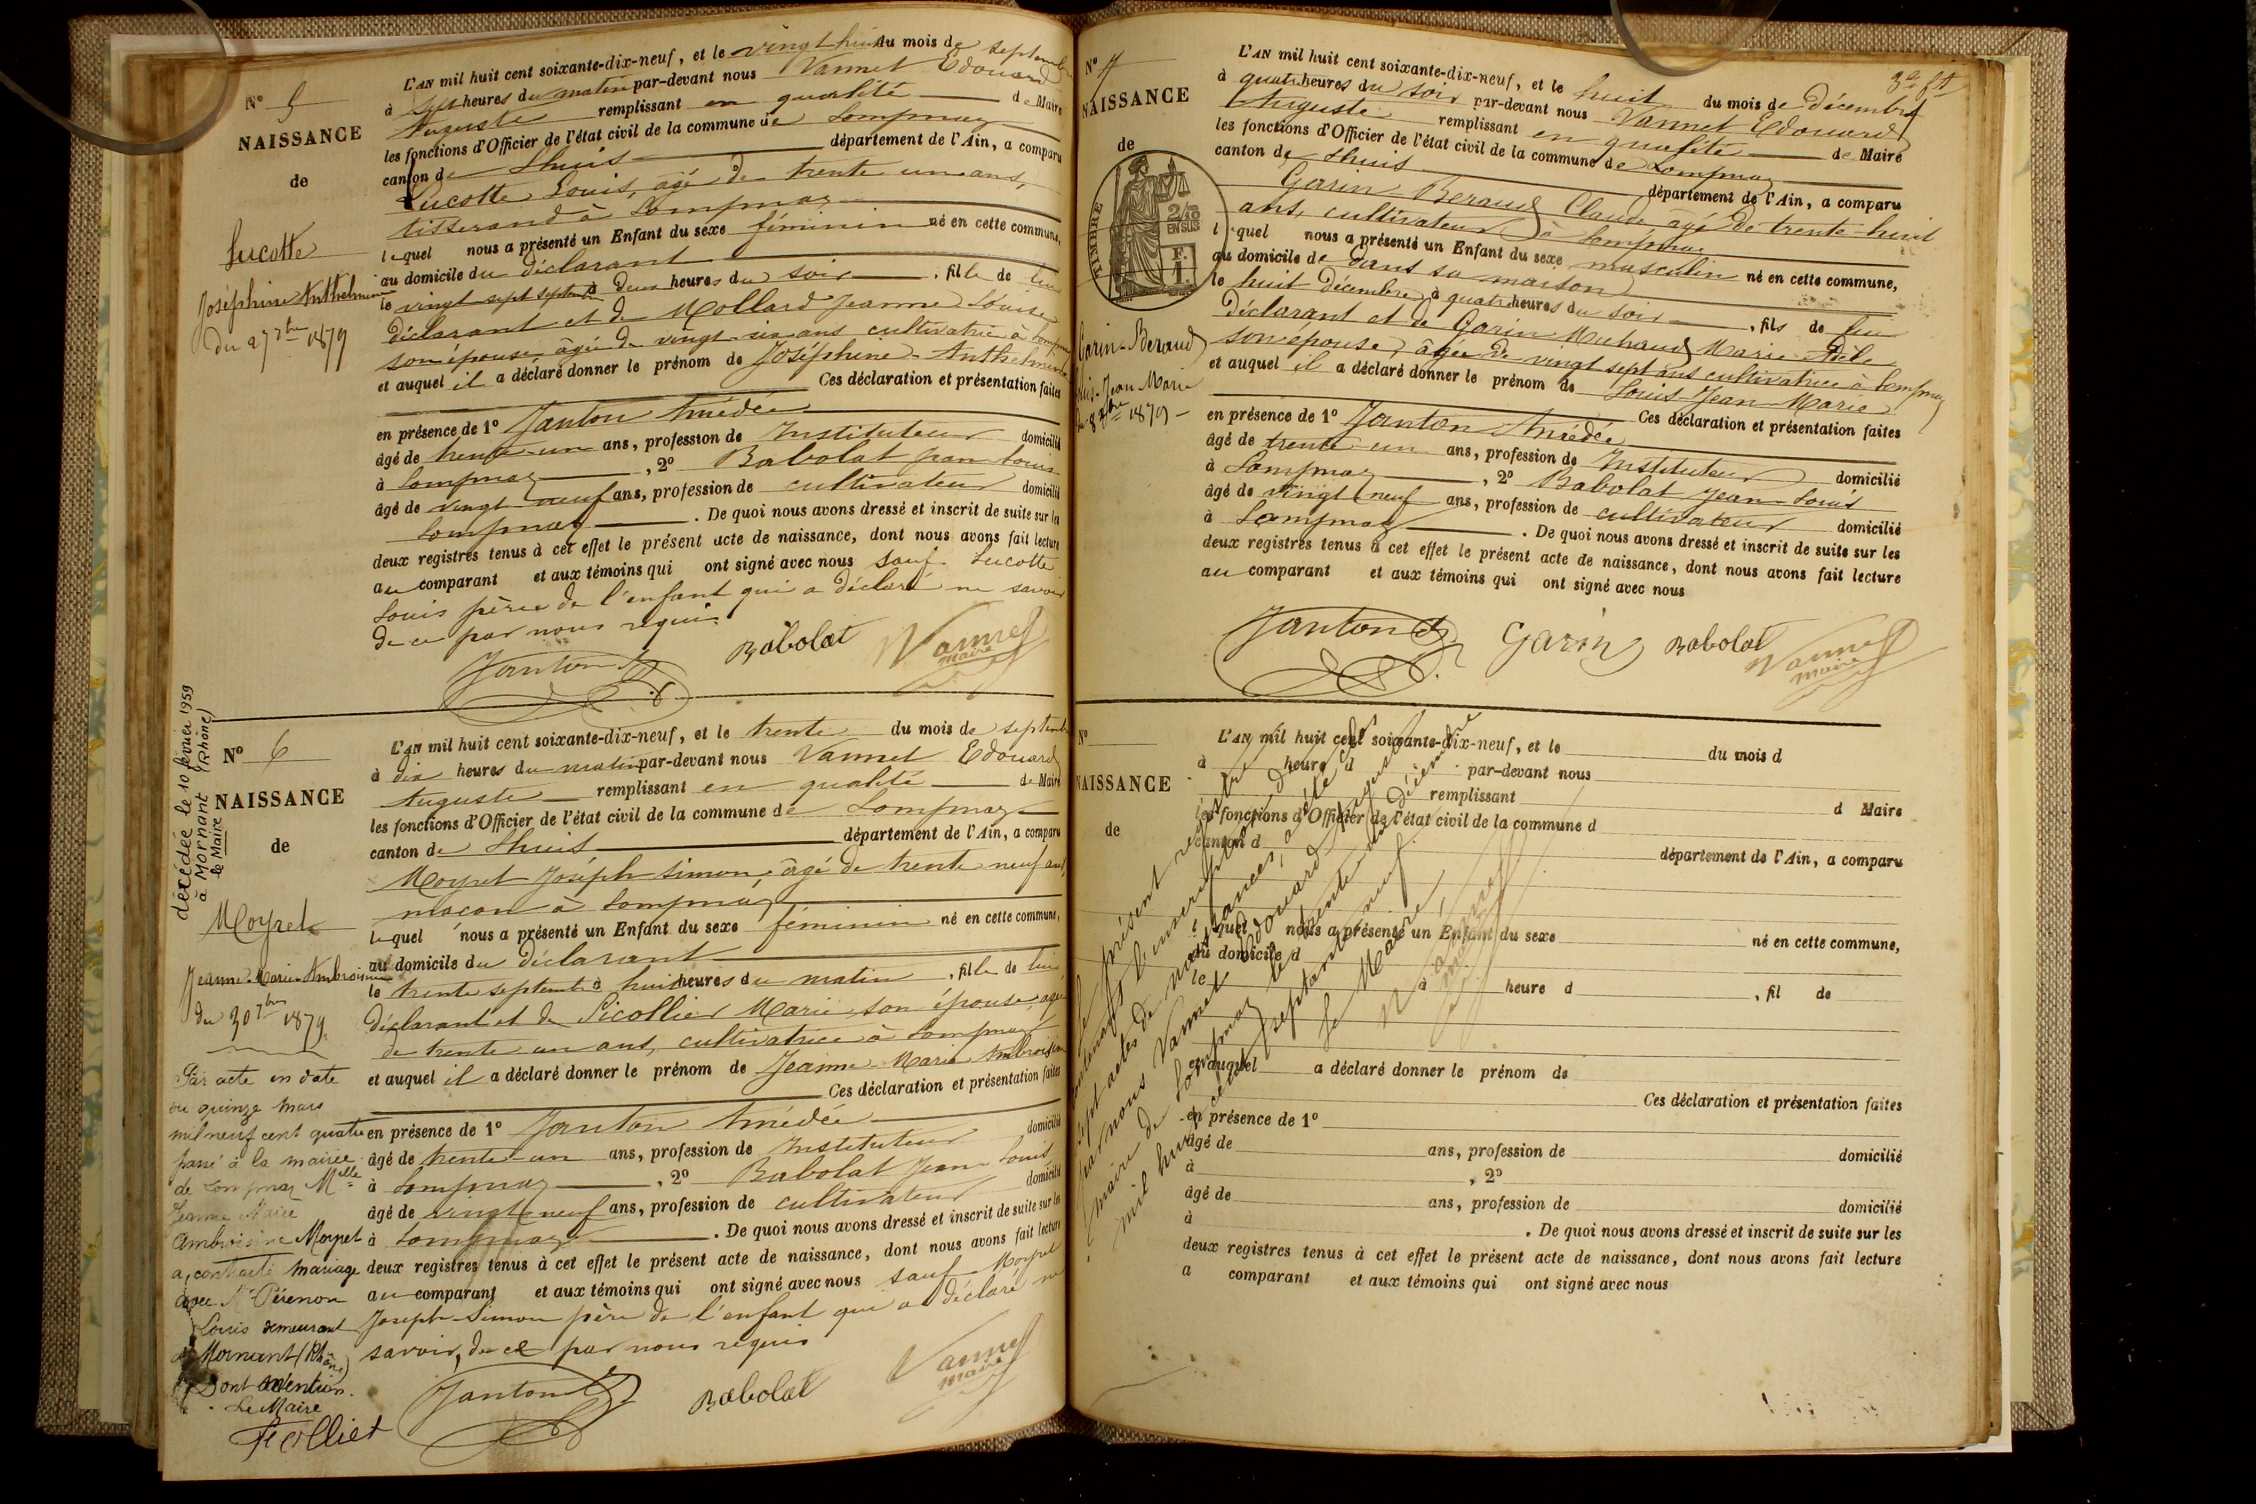 N° 5
NAISSANCE
de
Lucotte
Joséphine Anthelmine
du 27 7bre 1879
L'AN mil huit cent soixante-dix-neuf, et le vingt huit du mois de septembre
à sept heures du matin par-devant nous Vannet Edouard
Auguste remplissant en qualité de Maire
les fonctions d'Officier de l'état civil de la commune de Lompnaz
canton de Lhuis département de l'Ain, a comparu
Lucotte Louis, âgé de trente un ans,
tisserand à Lompnaz
lequel nous a présenté un Enfant du sexe féminin né en cette commune,
au domicile du déclarant
le vingt sept septembre à deux heures du soir, fille de lui
déclarant et de Mollard Jeanne Louise
son épouse âgée de vingt six ans cultivatrice à Lompnaz
et auquel il a déclaré donner le prénom de Joséphine-Anthelmine
Ces déclaration et présentation faites
en présence de 1° Janton Amédée
âgé de trente-un ans, profession de Instituteur domicilié
à Lompnaz, 2° Babolat Jean Louis
âgé de vingt neuf ans, profession de cultivateur domicilié
Lompnaz. De quoi nous avons dressé et inscrit de suite sur les
deux registres tenus à cet effet le présent acte de naissance, dont nous avons fait lecture
au comparant et aux témoins qui ont signé avec nous sauf Lucotte
Louis père de l'enfant qui a déclaré ne savoir
de ce par nous requis
Janton Babolat Vannet
maire
décédée le 10 février 1959
à Mornant (Rhône)
le Maire
N° 6
NAISSANCE
de
Moyret
Jeanne-Marie-Ambroisine
du 30 7bre 1879
Par acte en date
du quinze mars
mil neuf cent quatre
passé à la mairie
de Lompnaz Mlle
Jeanne Marie
Ambroisine Moyret
a contracté mariage
avec Mr Pérenon
Louis demeurant
à Mornant (Rhône)
Dont mention.
Le Maire
Folliet
L'AN mil huit cent soixante-dix-neuf, et le trente du mois de septembre
à dix heures du matin par-devant nous Vannet Edouard
Auguste remplissant en qualité de Maire
les fonctions d'Officier de l'état civil de la commune de Lompnaz
canton de Lhuis département de l'Ain, a comparu
Moyret Joseph Simon, âgé de trente neuf ans,
maçon à Lompnaz
lequel nous a présenté un Enfant du sexe féminin né en cette commune,
au domicile du déclarant
le trente septembre à huit heures du matin, fille de lui
déclarant et de Sicollier Marie son épouse, âgée
de trente un ans, cultivatrice à Lompnaz
et auquel il a déclaré donner le prénom de Jeanne-Marie Ambroisine
Ces déclaration et présentation faites
en présence de 1° Janton Amédée
âgé de trente-un ans, profession de Instituteur domicilié
à Lompnaz, 2° Babolat Jean Louis
âgé de vingt neuf ans, profession de cultivateur domicilié
à Lompnaz. De quoi nous avons dressé et inscrit de suite sur les
deux registres tenus à cet effet le présent acte de naissance, dont nous avons fait lecture
au comparant et aux témoins qui ont signé avec nous sauf Moyret
Joseph Simon père de l'enfant qui a déclaré ne
savoir, de ce par nous requis
Janton Babolat Vannet
maire
3e ft
N° 7
NAISSANCE
de
TIMBRE
2/10
EN SUS
F.
1
Garin-Beraud
Louis-Jean Marie
du 8 Xbre 1879
L'AN mil huit cent soixante-dix-neuf, et le huit du mois de décembre
à quatre heures du soir par-devant nous Vannet Edouard
Auguste remplissant en qualité de Maire
les fonctions d'Officier de l'état civil de la commune de Lompnaz
canton de Lhuis département de l'Ain, a comparu
Garin Beraud Claude âgé de trente-huit
ans, cultivateur à Lompnaz
lequel nous a présenté un Enfant du sexe masculin né en cette commune,
au domicile de dans sa maison
le huit Décembre à quatre heures du soir, fils de lui
déclarant et de Garin Michaud Marie Adèle
son épouse, âgée de vingt sept ans cultivatrice à Lompnaz
et auquel il a déclaré donner le prénom de Louis-Jean-Marie
Ces déclaration et présentation faites
en présence de 1° Janton Amédée
âgé de trente un ans, profession de Instituteur domicilié
à Lompnaz, 2° Babolat Jean-Louis
âgé de vingt neuf ans, profession de cultivateur domicilié
à Lompnaz. De quoi nous avons dressé et inscrit de suite sur les
deux registres tenus à cet effet le présent acte de naissance, dont nous avons fait lecture
au comparant et aux témoins qui ont signé avec nous
Janton Garin Babolat Vannet
maire
N°
NAISSANCE
de
L'AN mil huit cent soixante-dix-neuf, et le du mois d
à heure d par-devant nous
remplissant d Maire
les fonctions d'Officier de l'état civil de la commune d
canton d département de l'Ain, a comparu
l quel nous a présenté un Enfant du sexe né en cette commune,
au domicile d
le à heure d, fil de
et auquel a déclaré donner le prénom de
Ces déclaration et présentation faites
en présence de 1°
âgé de ans, profession de domicilié
à, 2°
âgé de ans, profession de domicilié
à. De quoi nous avons dressé et inscrit de suite sur les
deux registres tenus à cet effet le présent acte de naissance, dont nous avons fait lecture
a comparant et aux témoins qui ont signé avec nous
Le présent registre
contenant l'inscription de
sept actes de naissances, a été clos
par nous Vannet Edouard Auguste
maire de Lompnaz le trente un Décembre
mil huit cent septante neuf.
Le Maire,
Vannet
maire